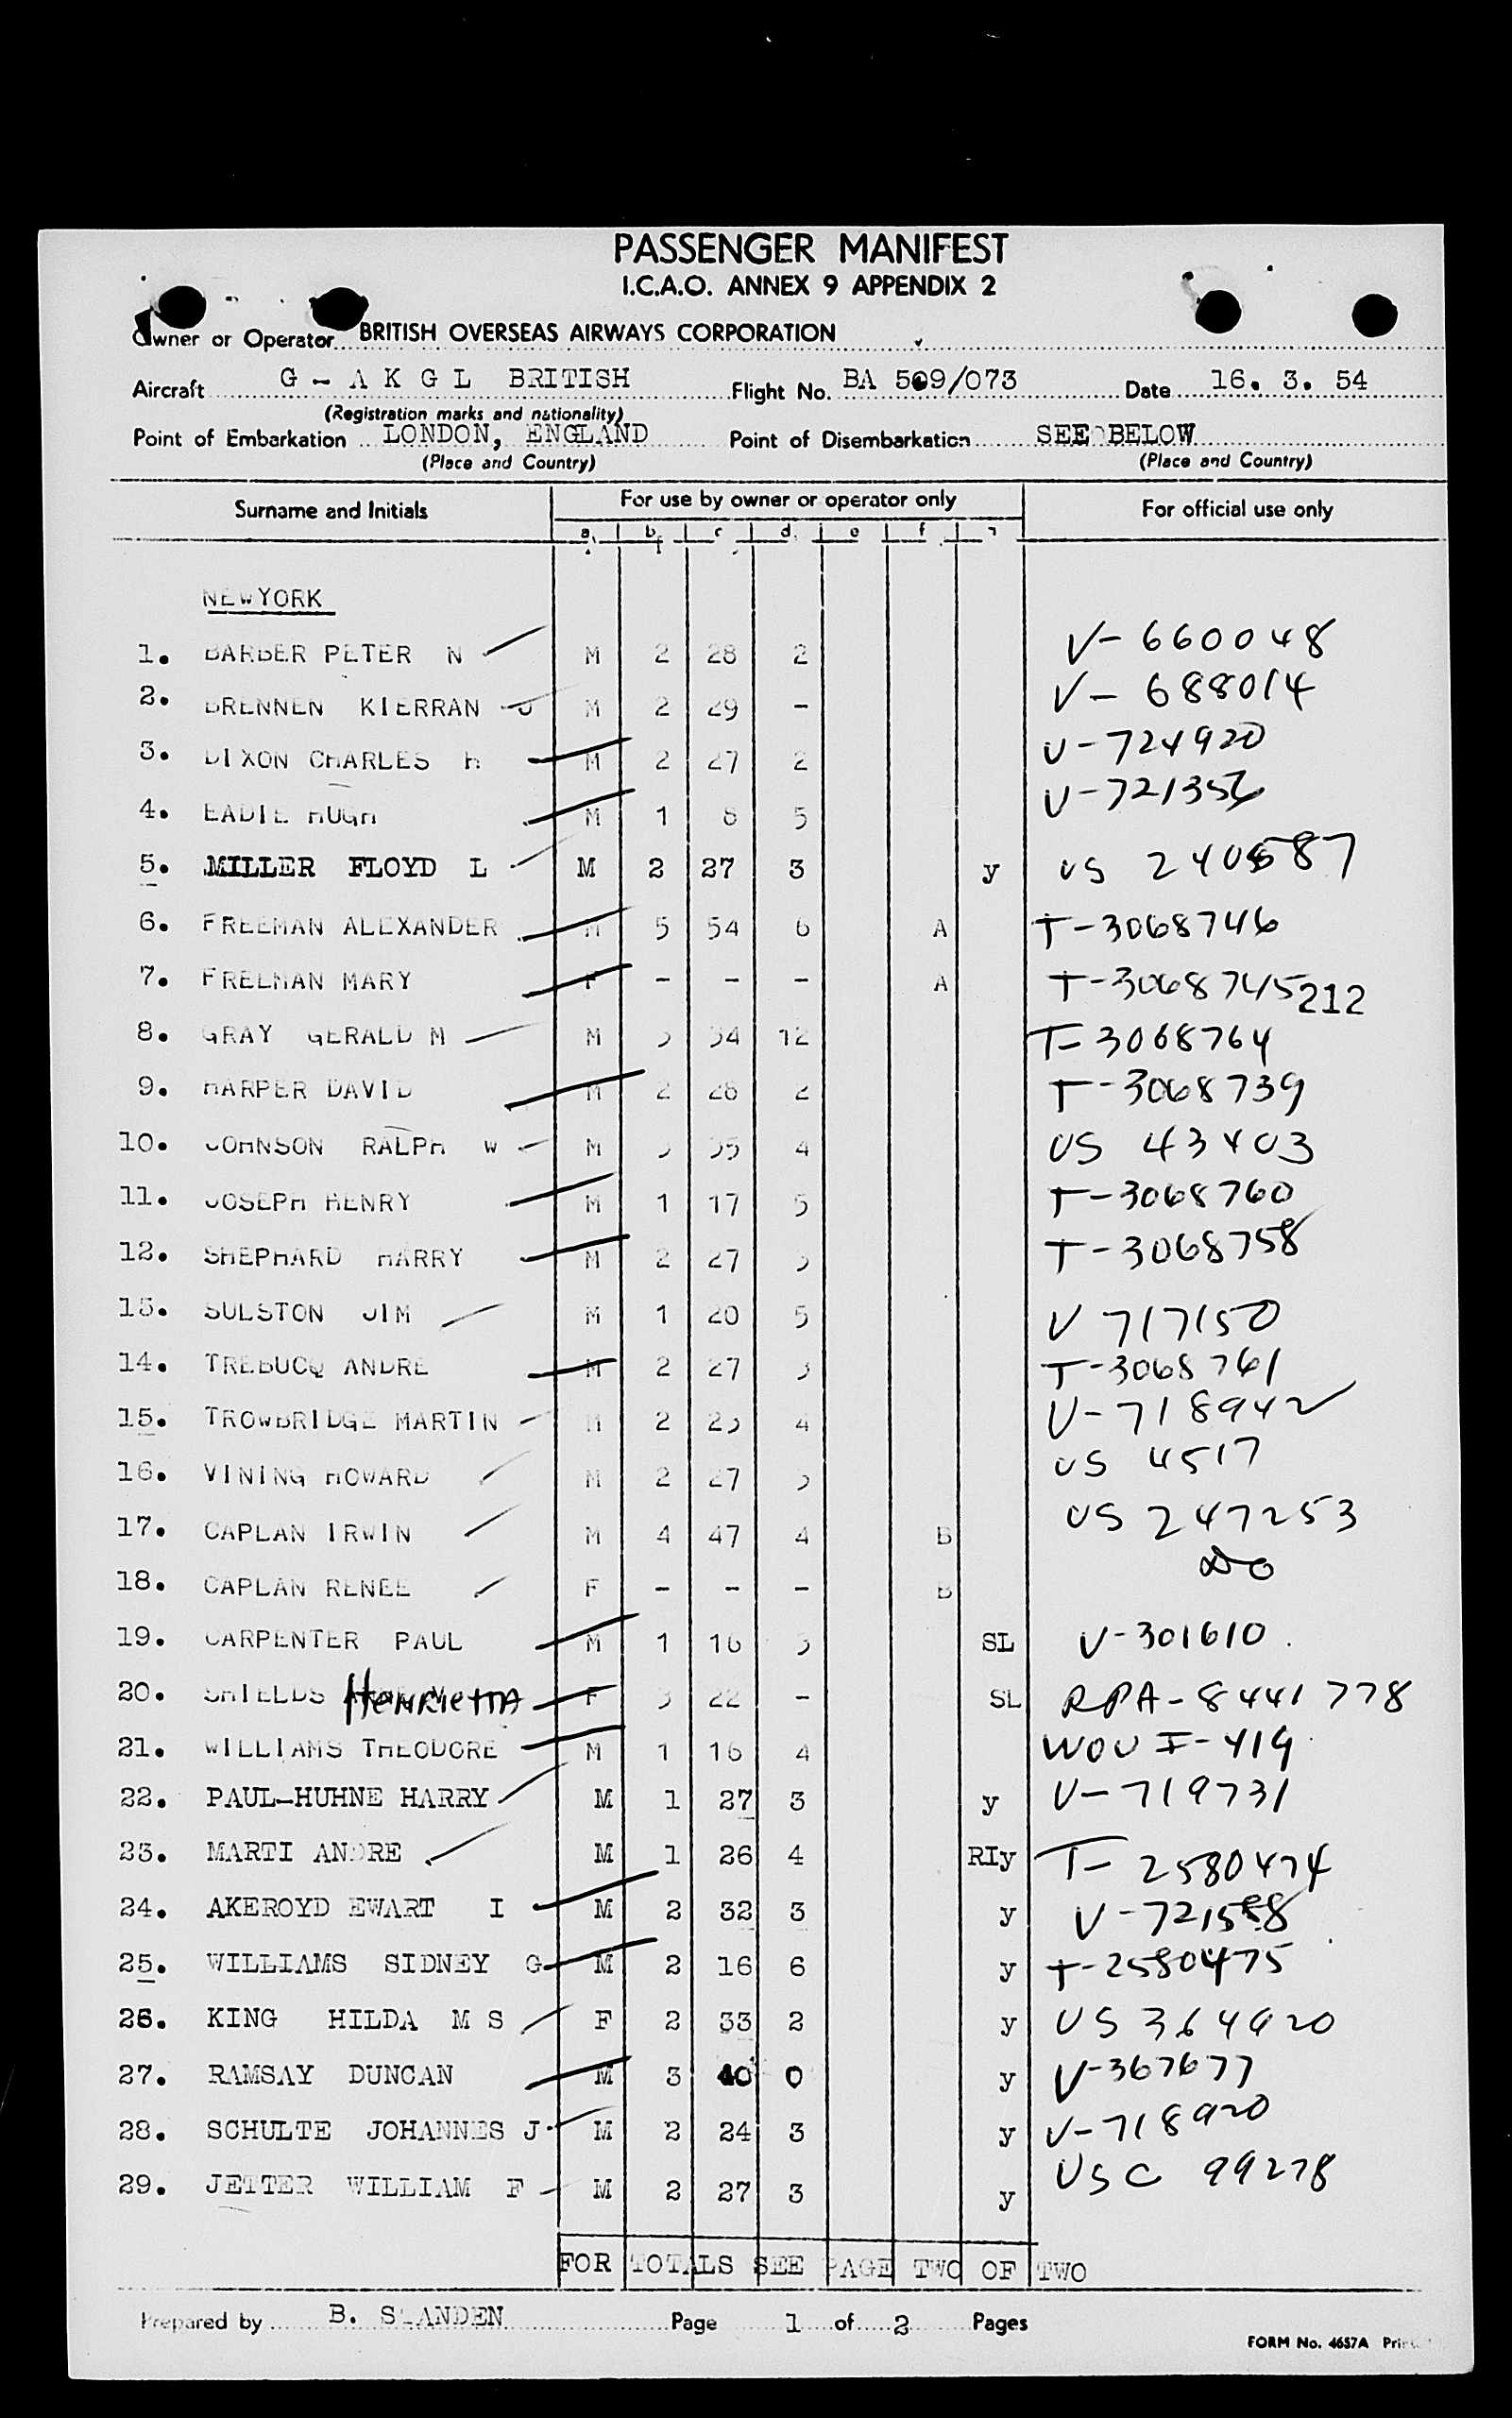 PASSENGER MANIFEST
I.C.A.O. ANNEX 9 APPENDIX 2
Owner or Operator BRITISH OVERSEAS AIRWAYS CORPORATION
Aircraft G - A K G L BRITISH Flight No. BA 509/073 Date 16. 3. 54
(Registration marks and nationality)
Point of Embarkation LONDON, ENGLAND Point of Disembarkation SEE BELOW
(Place and Country) (Place and Country)
Surname and Initials For use by owner or operator only For official use only
a b c d e f
NEWYORK
1. BARBER PETER N M 2 28 2 V-660048
2. BRENNEN KIERRAN J M 2 29 - V-688014
3. DIXON CHARLES H M 2 27 2 V-724920
4. EADIE HUGH M 1 8 5 V-721356
5. MILLER FLOYD L M 2 27 3 y US 2406587
6. FREEMAN ALEXANDER M 5 54 6 A T-3068746
7. FREEMAN MARY F - - - A T-3068745 212
8. GRAY GERALD M M 3 34 12 T-3068764
9. HARPER DAVID M 2 28 2 T-3068739
10. JOHNSON RALPH W M 3 35 4 US 43403
11. JOSEPH HENRY M 1 17 5 T-3068760
12. SHEPHARD HARRY M 2 27 3 T-3068758
13. SULSTON JIM M 1 20 5 V 717150
14. TREBUCQ ANDRE M 2 27 3 T-3068761
15. TROWBRIDGE MARTIN M 2 23 4 V-718942
16. VINING HOWARD M 2 27 3 US 4517
17. CAPLAN IRWIN M 4 47 4 B US 247253
18. CAPLAN RENEE F - - - B DO
19. CARPENTER PAUL M 1 16 3 SL V-301610
20. SHIELDS HENRIETTA F 3 22 - SL RPA-8441778
21. WILLIAMS THEODORE M 1 16 4 WOU I-419
22. PAUL-HUHNE HARRY M 1 27 3 y V-719731
23. MARTI ANDRE M 1 26 4 RIy T-2580474
24. AKEROYD EWART I M 2 32 3 y V-721558
25. WILLIAMS SIDNEY G M 2 16 6 y T-2580475
26. KING HILDA M S F 2 33 2 y US 364920
27. RAMSAY DUNCAN M 3 40 0 y V-367677
28. SCHULTE JOHANNES J M 2 24 3 y V-718920
29. JETTER WILLIAM F M 2 27 3 y USC 99278
FOR TOTALS SEE PAGE TWO OF TWO
Prepared by B. SLANDEN Page 1 of 2 Pages
FORM No. 4657A